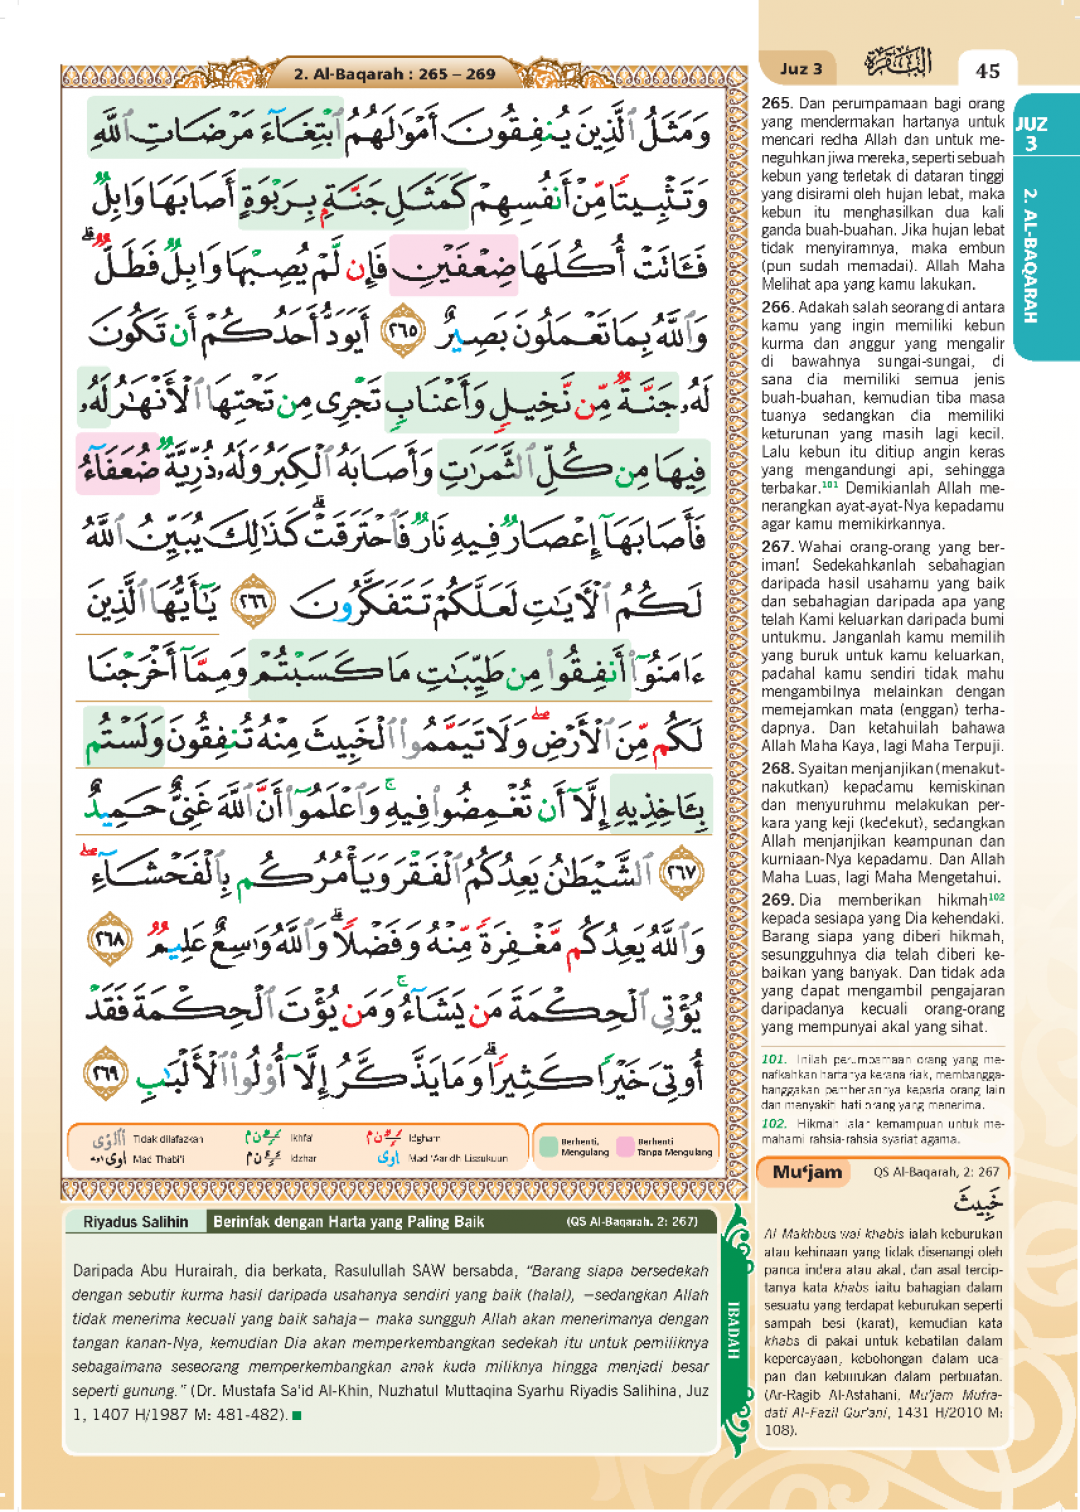 2. Al-Baqarah : 265 – 269
وَمَثَلُ ٱلَّذِينَ يُنفِقُونَ أَمْوَٰلَهُمُ ٱبْتِغَآءَ مَرْضَاتِ ٱللَّهِ
وَتَثْبِيتًا مِّنْ أَنفُسِهِمْ كَمَثَلِ جَنَّةٍۭ بِرَبْوَةٍ أَصَابَهَا وَابِلٌ
فَـَٔاتَتْ أُكُلَهَا ضِعْفَيْنِ فَإِن لَّمْ يُصِبْهَا وَابِلٌ فَطَلٌّ ۗ
وَٱللَّهُ بِمَا تَعْمَلُونَ بَصِيرٌ ٢٦٥ أَيَوَدُّ أَحَدُكُمْ أَن تَكُونَ
لَهُۥ جَنَّةٌ مِّن نَّخِيلٍ وَأَعْنَابٍ تَجْرِى مِن تَحْتِهَا ٱلْأَنْهَٰرُ لَهُۥ
فِيهَا مِن كُلِّ ٱلثَّمَرَٰتِ وَأَصَابَهُ ٱلْكِبَرُ وَلَهُۥ ذُرِّيَّةٌ ضُعَفَآءُ
فَأَصَابَهَآ إِعْصَارٌ فِيهِ نَارٌ فَٱحْتَرَقَتْ ۗ كَذَٰلِكَ يُبَيِّنُ ٱللَّهُ
لَكُمُ ٱلْـَٔايَٰتِ لَعَلَّكُمْ تَتَفَكَّرُونَ ٢٦٦ يَٰٓأَيُّهَا ٱلَّذِينَ
ءَامَنُوٓا۟ أَنفِقُوا۟ مِن طَيِّبَٰتِ مَا كَسَبْتُمْ وَمِمَّآ أَخْرَجْنَا
لَكُم مِّنَ ٱلْأَرْضِ ۖ وَلَا تَيَمَّمُوا۟ ٱلْخَبِيثَ مِنْهُ تُنفِقُونَ وَلَسْتُم
بِـَٔاخِذِيهِ إِلَّآ أَن تُغْمِضُوا۟ فِيهِ ۚ وَٱعْلَمُوٓا۟ أَنَّ ٱللَّهَ غَنِىٌّ حَمِيدٌ
٢٦٧ ٱلشَّيْطَٰنُ يَعِدُكُمُ ٱلْفَقْرَ وَيَأْمُرُكُم بِٱلْفَحْشَآءِ ۖ
وَٱللَّهُ يَعِدُكُم مَّغْفِرَةً مِّنْهُ وَفَضْلًا ۗ وَٱللَّهُ وَٰسِعٌ عَلِيمٌ ٢٦٨
يُؤْتِى ٱلْحِكْمَةَ مَن يَشَآءُ ۚ وَمَن يُؤْتَ ٱلْحِكْمَةَ فَقَدْ
أُوتِىَ خَيْرًا كَثِيرًا ۗ وَمَا يَذَّكَّرُ إِلَّآ أُو۟لُوا۟ ٱلْأَلْبَٰبِ ٢٦٩
Tidak dilafazkan
Ikhfa'
Idgham
Mad Thabi'i
Idzhar
Mad 'Aaridh Lissukuun
Berhenti, Mengulang
Berhenti Tanpa Mengulang
Riyadus Salihin Berinfak dengan Harta yang Paling Baik (QS Al-Baqarah. 2: 267)
Daripada Abu Hurairah, dia berkata, Rasulullah SAW bersabda, “Barang siapa bersedekah
dengan sebutir kurma hasil daripada usahanya sendiri yang baik (halal), —sedangkan Allah
tidak menerima kecuali yang baik sahaja— maka sungguh Allah akan menerimanya dengan
tangan kanan-Nya, kemudian Dia akan memperkembangkan sedekah itu untuk pemiliknya
sebagaimana seseorang memperkembangkan anak kuda miliknya hingga menjadi besar
seperti gunung.” (Dr. Mustafa Sa'id Al-Khin, Nuzhatul Muttaqina Syarhu Riyadis Salihina, Juz
1, 1407 H/1987 M: 481-482).
IBADAH
Juz 3
البقرة
45
JUZ
3
2. AL-BAQARAH
265. Dan perumpamaan bagi orang
yang mendermakan hartanya untuk
mencari redha Allah dan untuk me-
neguhkan jiwa mereka, seperti sebuah
kebun yang terletak di dataran tinggi
yang disirami oleh hujan lebat, maka
kebun itu menghasilkan dua kali
ganda buah-buahan. Jika hujan lebat
tidak menyiramnya, maka embun
(pun sudah memadai). Allah Maha
Melihat apa yang kamu lakukan.
266. Adakah salah seorang di antara
kamu yang ingin memiliki kebun
kurma dan anggur yang mengalir
di bawahnya sungai-sungai, di
sana dia memiliki semua jenis
buah-buahan, kemudian tiba masa
tuanya sedangkan dia memiliki
keturunan yang masih lagi kecil.
Lalu kebun itu ditiup angin keras
yang mengandungi api, sehingga
terbakar.101 Demikianlah Allah me-
nerangkan ayat-ayat-Nya kepadamu
agar kamu memikirkannya.
267. Wahai orang-orang yang ber-
iman! Sedekahkanlah sebahagian
daripada hasil usahamu yang baik
dan sebahagian daripada apa yang
telah Kami keluarkan daripada bumi
untukmu. Janganlah kamu memilih
yang buruk untuk kamu keluarkan,
padahal kamu sendiri tidak mahu
mengambilnya melainkan dengan
memejamkan mata (enggan) terha-
dapnya. Dan ketahuilah bahawa
Allah Maha Kaya, lagi Maha Terpuji.
268. Syaitan menjanjikan (menakut-
nakutkan) kepadamu kemiskinan
dan menyuruhmu melakukan per-
kara yang keji (kedekut), sedangkan
Allah menjanjikan keampunan dan
kurniaan-Nya kepadamu. Dan Allah
Maha Luas, lagi Maha Mengetahui.
269. Dia memberikan hikmah102
kepada sesiapa yang Dia kehendaki.
Barang siapa yang diberi hikmah,
sesungguhnya dia telah diberi ke-
baikan yang banyak. Dan tidak ada
yang dapat mengambil pengajaran
daripadanya kecuali orang-orang
yang mempunyai akal yang sihat.
101. Inilah perumpamaan orang yang me-
nafkahkan hartanya kerana riak, membangga-
banggakan pemberiannya kepada orang lain
dan menyakiti hati orang yang menerima.
102. Hikmah ialah kemampuan untuk me-
mahami rahsia-rahsia syariat agama.
Mu‘jam QS Al-Baqarah, 2: 267
خَبِيثَ
Al Makhbus wal khabis ialah keburukan
atau kehinaan yang tidak disenangi oleh
panca indera atau akal, dan asal tercip-
tanya kata khabs iaitu bahagian dalam
sesuatu yang terdapat keburukan seperti
sampah besi (karat), kemudian kata
khabs di pakai untuk kebatilan dalam
kepercayaan, kebohongan dalam uca-
pan dan keburukan dalam perbuatan.
(Ar-Ragib Al-Asfahani, Mu'jam Mufra-
dati Al-Fazil Qur'ani, 1431 H/2010 M:
108).